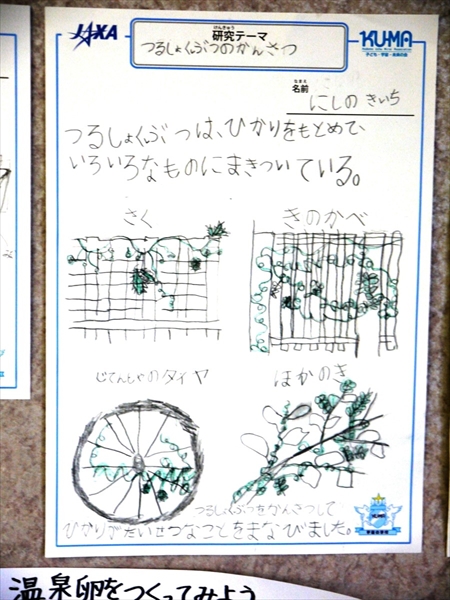 JAXA
けんきゅう
研究テーマ
つるしょくぶつのかんさつ
KU-MA
子ども・宇宙・未来の会
なまえ
名前
にしの きいち
つるしょくぶつは、ひかりをもとめて、
いろいろなものにまきついている。
さく
きのかべ
じてんしゃのタイヤ
ほかのき
つるしょくぶつをかんさつして
ひかりがたいせつなことをまなびました。
KU-MA
宇宙の学校
温泉卵をつくってみよう